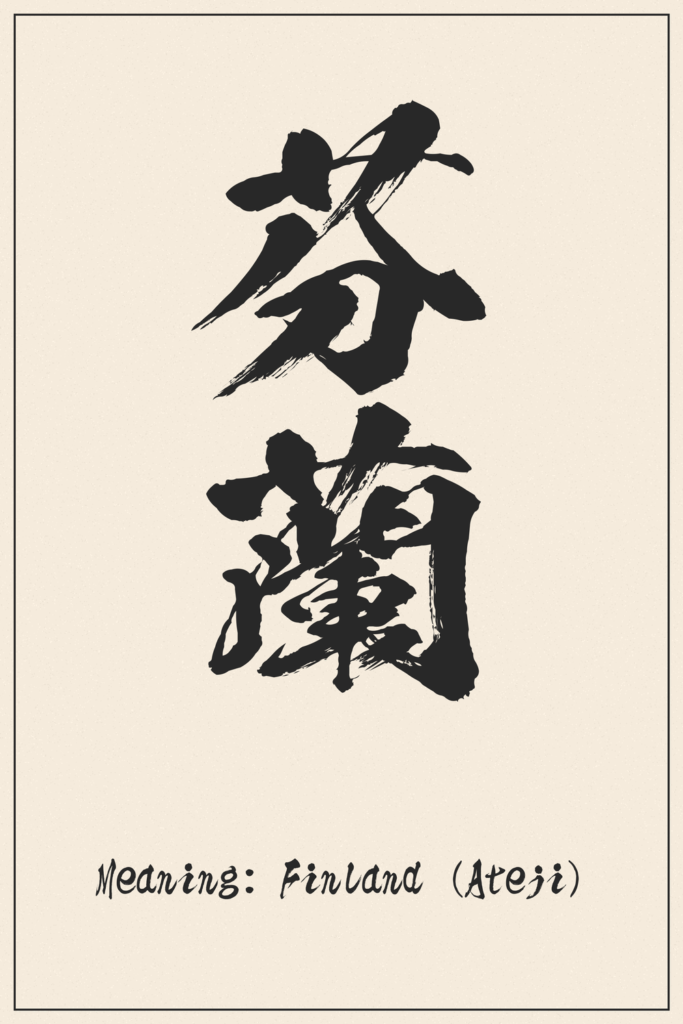 芬蘭
Meaning: Finland (Ateji)